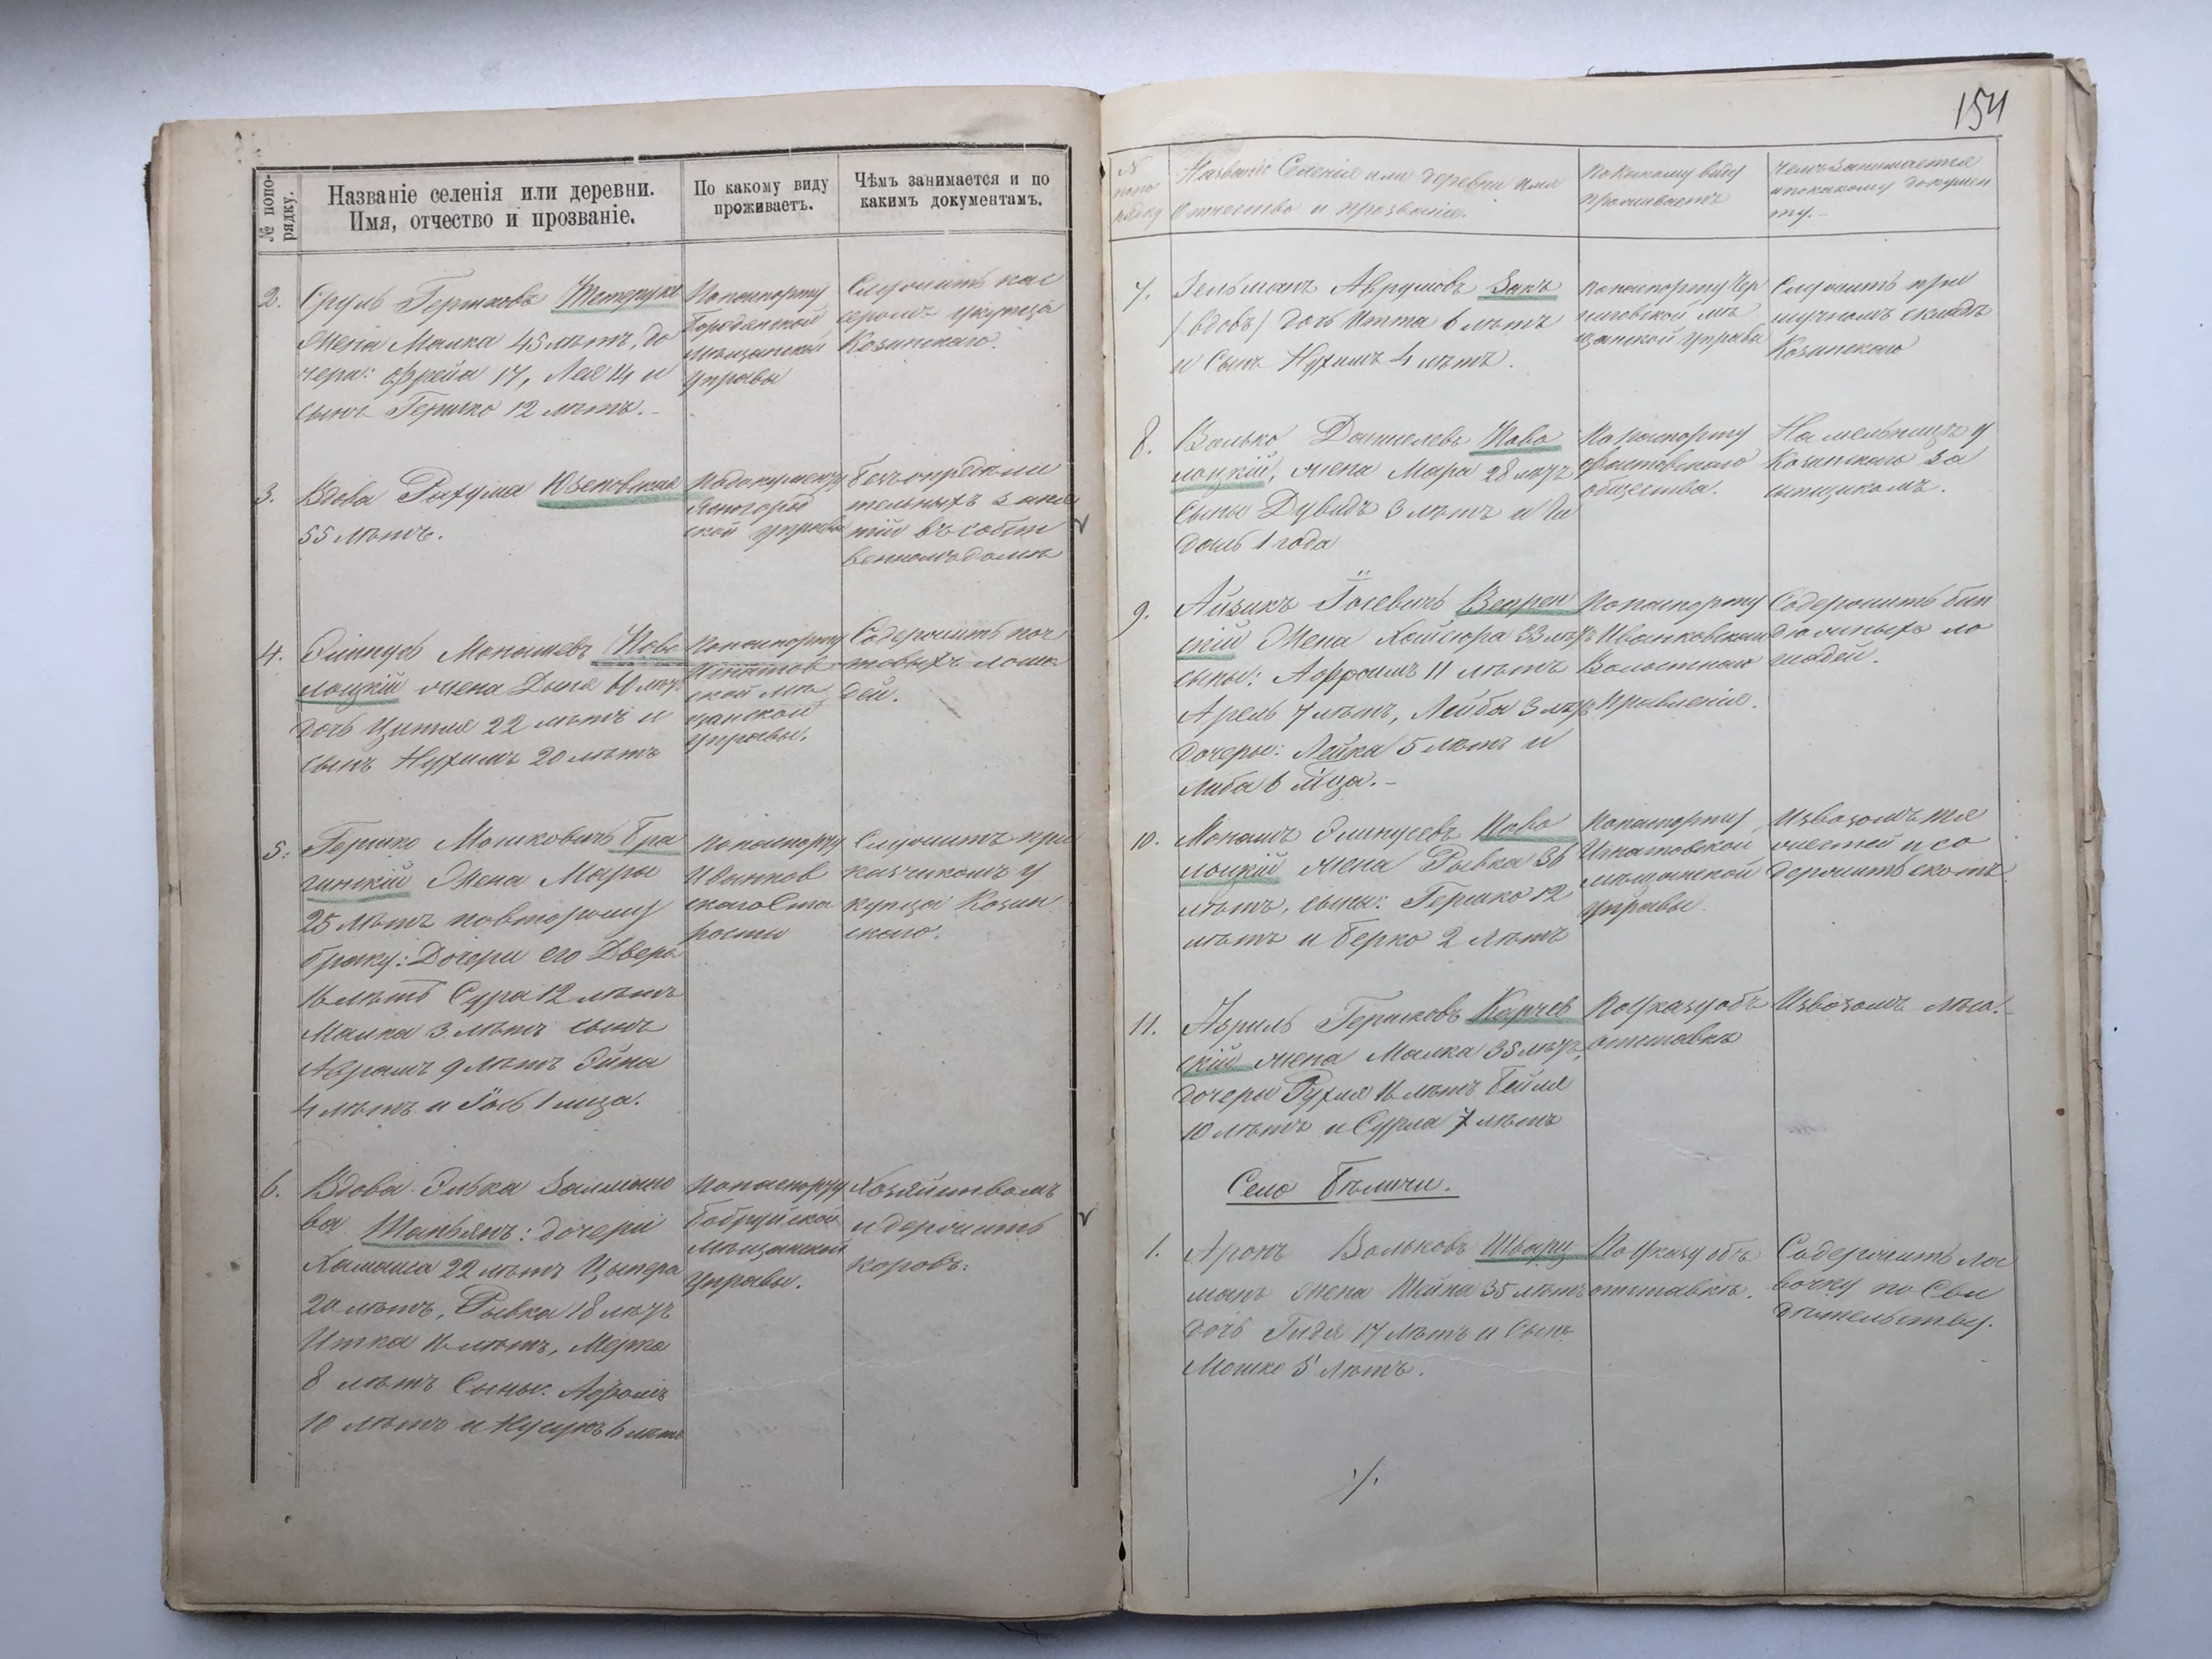 № попо-
рядку.
Названіе селенія или деревни.
Имя, отчество и прозваніе.
По какому виду
проживаетъ.
Чѣмъ занимается и по
какимъ документамъ.
2.
Сруль Гершковъ
Жена Малка 45 лѣтъ, до
чери: Фрейда 17, Лея 14 и
сынъ Гершко 12 лѣтъ.
По паспорту
Городянской
мѣщанской
управы
Служитъ кас
сиромъ у купца
Козинскаго.
3.
Вдова Рахума Юзеповская
55 лѣтъ.
Ясногород
ской управы
Безъ опредѣли
тельныхъ заня
тій въ собст
венномъ домѣ
4.
Элинусъ Монашевъ Ново
лоцкій жена Двося 61 лѣтъ
дочь Ципля 22 лѣтъ и
сынъ Нухимъ 20 лѣтъ
По паспорту
Игнатов
ской мѣ
щанской
управы.
Содержитъ поч
товыхъ лоша
дей.
5.
Гершко Мошковичъ Бра
гинскій Жена Мара
25 лѣтъ по второму
браку: Дочери его Двера
16 лѣтъ Сура 12 лѣтъ
Малка 3 лѣтъ сынъ
Аврамъ 9 лѣтъ Эйна
4 лѣтъ и Іось 1 мца.
По паспорту
Иванков
скаго Ста
росты
Служитъ при
казчикомъ у
купца Козин
скаго.
6.
Вдова Элька Залмано
ва Шапьянъ: дочери
Хамаша 22 лѣтъ Ципера
20 лѣтъ, Рывка 18 лѣтъ
Итка 16 лѣтъ, Мерка
8 лѣтъ Сыны: Афроимъ
10 лѣтъ и Нусунъ 6 лѣтъ
По паспорту
Бобруйской
Мѣщанской
Управы.
Хозяйствомъ
и держитъ
коровъ.
154
№
попо
рядку
Названіе Селенія или деревни имя
Отчество и прозваніе.
По какому виду
проживаетъ
Чемъ занимается
и по какому докумен
ту.
7.
Зельманъ Аврумовъ Закъ
/вдовъ/ дочь Итта 6 лѣтъ
и Сынъ Нухимъ 4 лѣтъ.
По паспорту Чер
ниговской мѣ
щанской управы
Служитъ при
мучномъ складѣ
Козинскаго
8.
Волько Даниелевъ Ново
лоцкій, жена Мара 28 лѣтъ
Сыны Дувидъ 3 лѣтъ и Ши
домъ 1 года
По паспорту
Фастовскаго
общества.
На мельницѣ у
Козинскаго за
сыпщикомъ.
9.
Айзикъ Іосевичъ Вепрен
скій Жена Хайсюра 33 лѣтъ
сыны: Афроимъ 11 лѣтъ
Арель 7 лѣтъ, Лейба 3 лѣтъ
дочеры: Лейка 5 лѣтъ и
Либа 6 мца.
По паспорту
Иванковскаго
Волостного
Правленія.
Содержитъ бин
дюжныхъ ло
шадей.
10.
Монашъ Элинусевъ Ново
лоцкій жена Рывка 36
лѣтъ, сыны: Гершко 12
лѣтъ и Берко 2 лѣтъ
По паспорту
Игнатовской
мѣщанской
управы
Извозомъ тя
жестей и со
держитъ скотъ.
11.
Гершковъ Карчев
скій жена Малка 35 лѣтъ,
дочеры Рухля 16 лѣтъ Бейля
10 лѣтъ и Сурла 7 лѣтъ
По указу объ
отставкѣ
Извозомъ лѣса.
Село Бѣличи.
1.
Аронъ Вольковъ Шварц
манъ Жена Шейна 35 лѣтъ
дочь Гидя 17 лѣтъ и Сынъ
Мошко 5 лѣтъ.
По Указу объ
отставкѣ.
Содержитъ ла
вочку по Сви
дѣтельству.